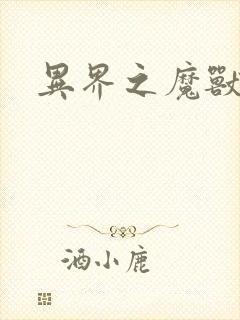 異界之魔獸
酒小鹿